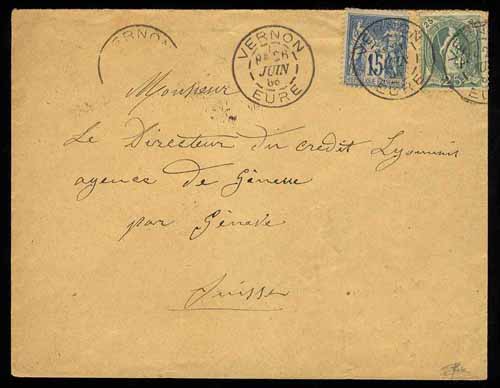 VERNON
VERNON
26
JUIN
86
EURE
15
VERNON
EURE
25
25
Monsieur
Le Directeur du credit Lyonnais
agence de Génève
par Génève
Suisse